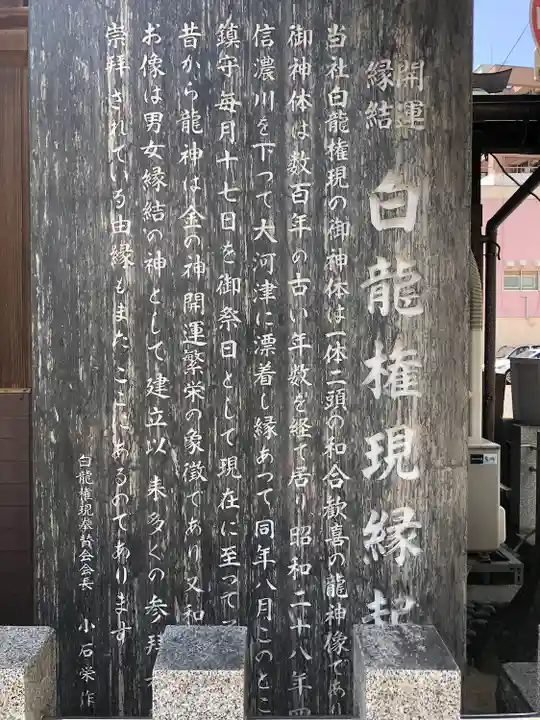 開運
縁結
白龍権現縁起
当社白龍権現の御神体は一体二頭の和合歓喜の龍神像であり
御神体は数百年の古い年数を経て居り昭和二十八年四
信濃川を下つて大河津に漂着し縁あつて同年八月このとこ
鎮守毎月十七日を御祭日として現在に至つて
昔から龍神は金の神開運繁栄の象徴であり又和
お像は男女縁結の神として建立以来多くの参拝
崇拝されている由縁もまたここにあるのであります
白龍権現奉賛会会長 小石栄作